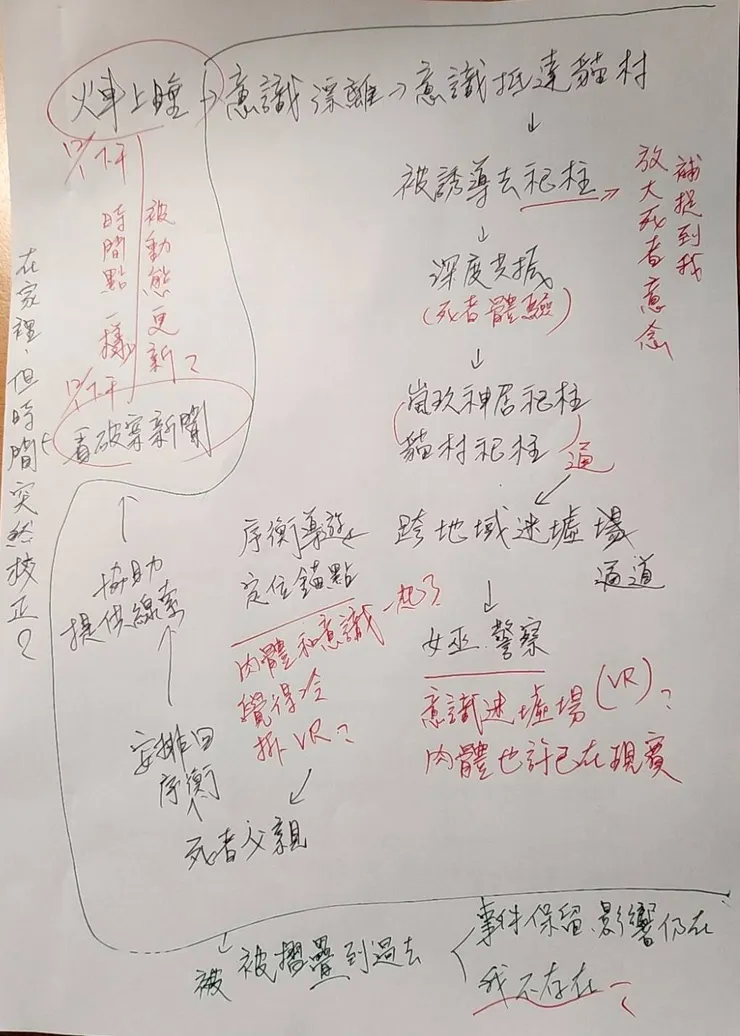 火車上睡→意識深離→意識抵達貓村
↓
被誘導去祀柱→
補捉到我
放大死者意念
↓
深度共振
(死者體驗)
↓
嵐玖神居祀柱
貓村祀柱
通
跨地域迷墟場
通道
↓
女巫.警察
意識迷墟場(VR)?
肉體也許已在現實
序衡導放
定位錨點
肉體和意識一起了
覺得冷
拆VR?
死者父親
安排回
序衡
協助
提供線索
↑
看破案新聞
12/1下午
12/1下午
時間點一樣
被動態更新?
在家裡,但時間突然校正?
↓
被被摺疊到過去
事件保留.影響仍在
我不存在?